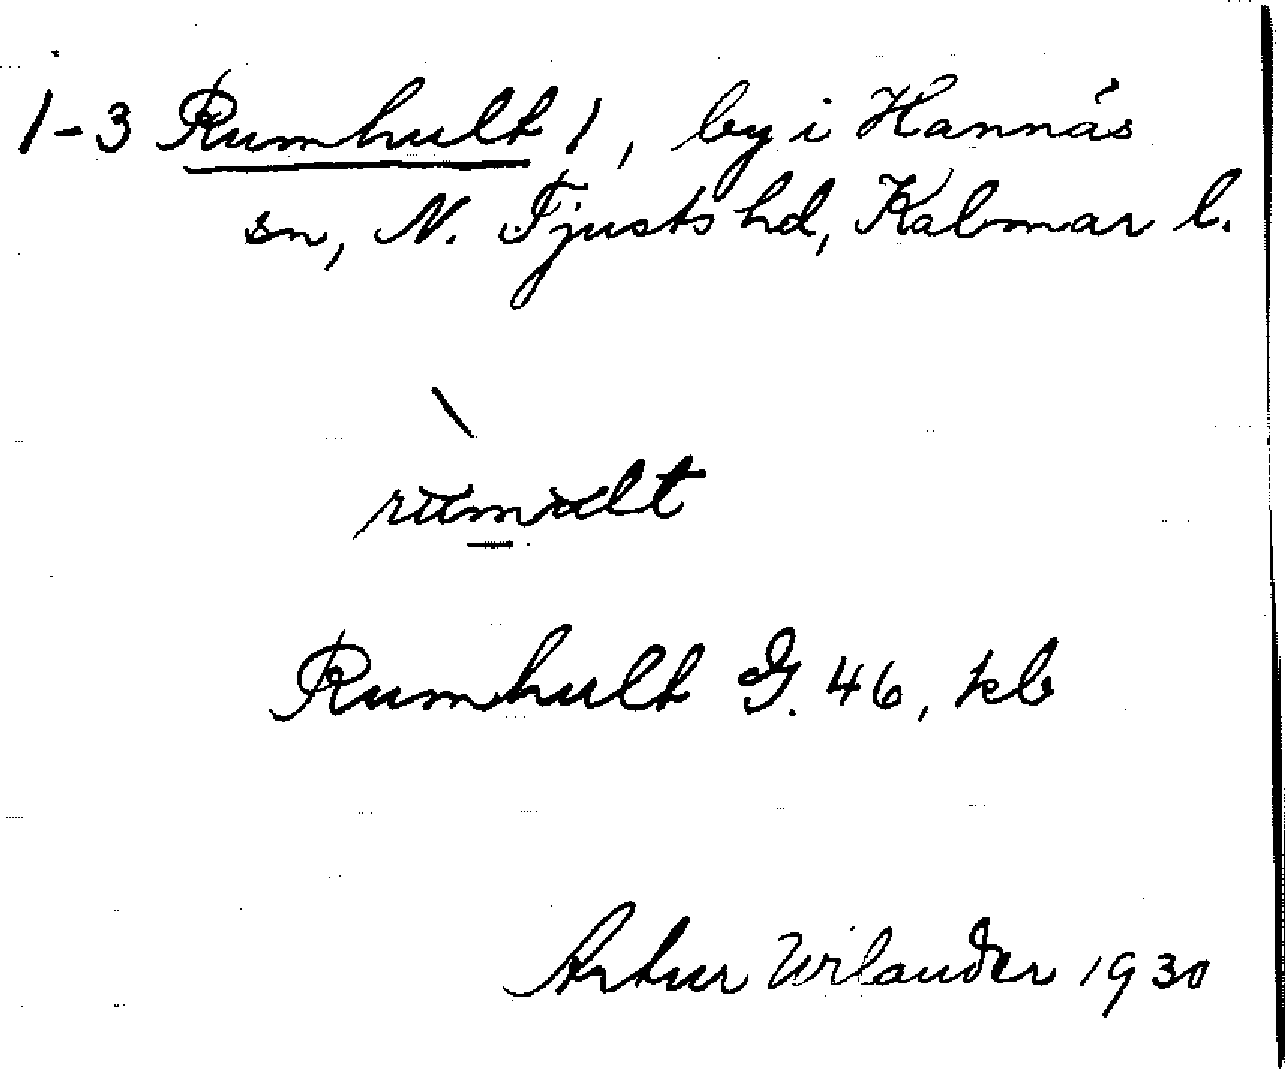 1-3 Rumhult 1, by i Hannäs
sn, N. Tjusts hd, Kalmar l.
rumult
Rumhult G. 46, kb
Artur Wilander 1930